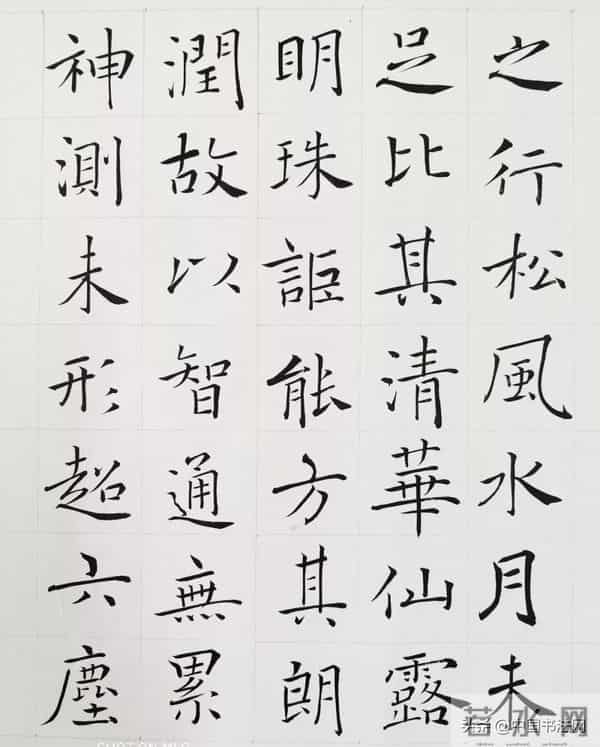 之行松風水月未
足比其清華仙露
明珠詎能方其朗
潤故以智通無累
神測未形超六塵
头条 @中国书法网